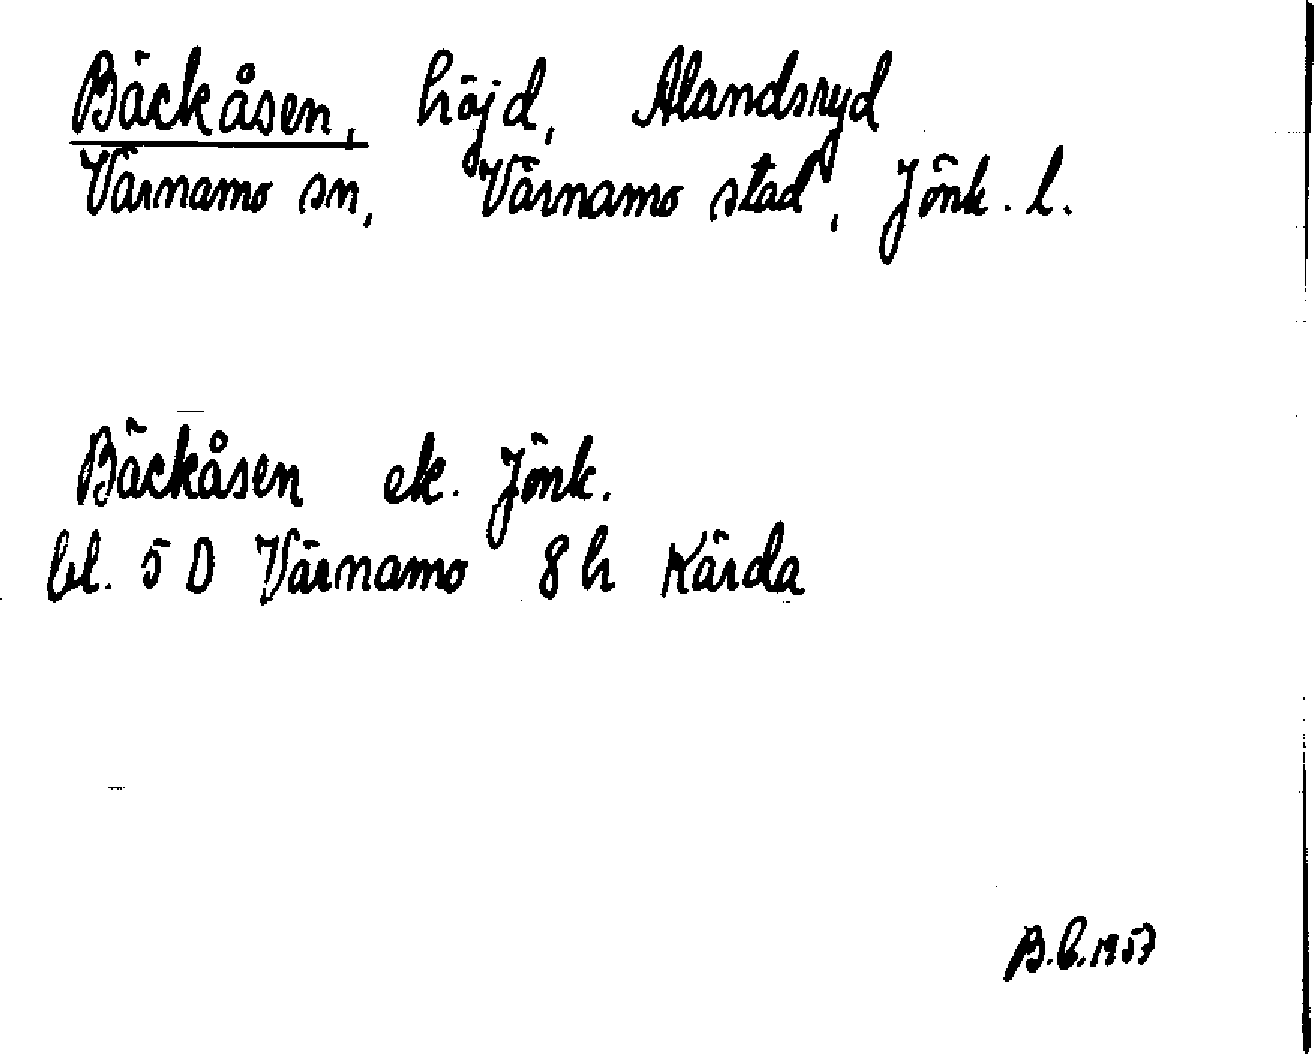 Bäckåsen, höjd, Alandsryd
Värnamo sn, Värnamo stad, Jönk. l.
Bäckåsen ek. Jönk.
bl. 5 D Värnamo 8 h Kärda